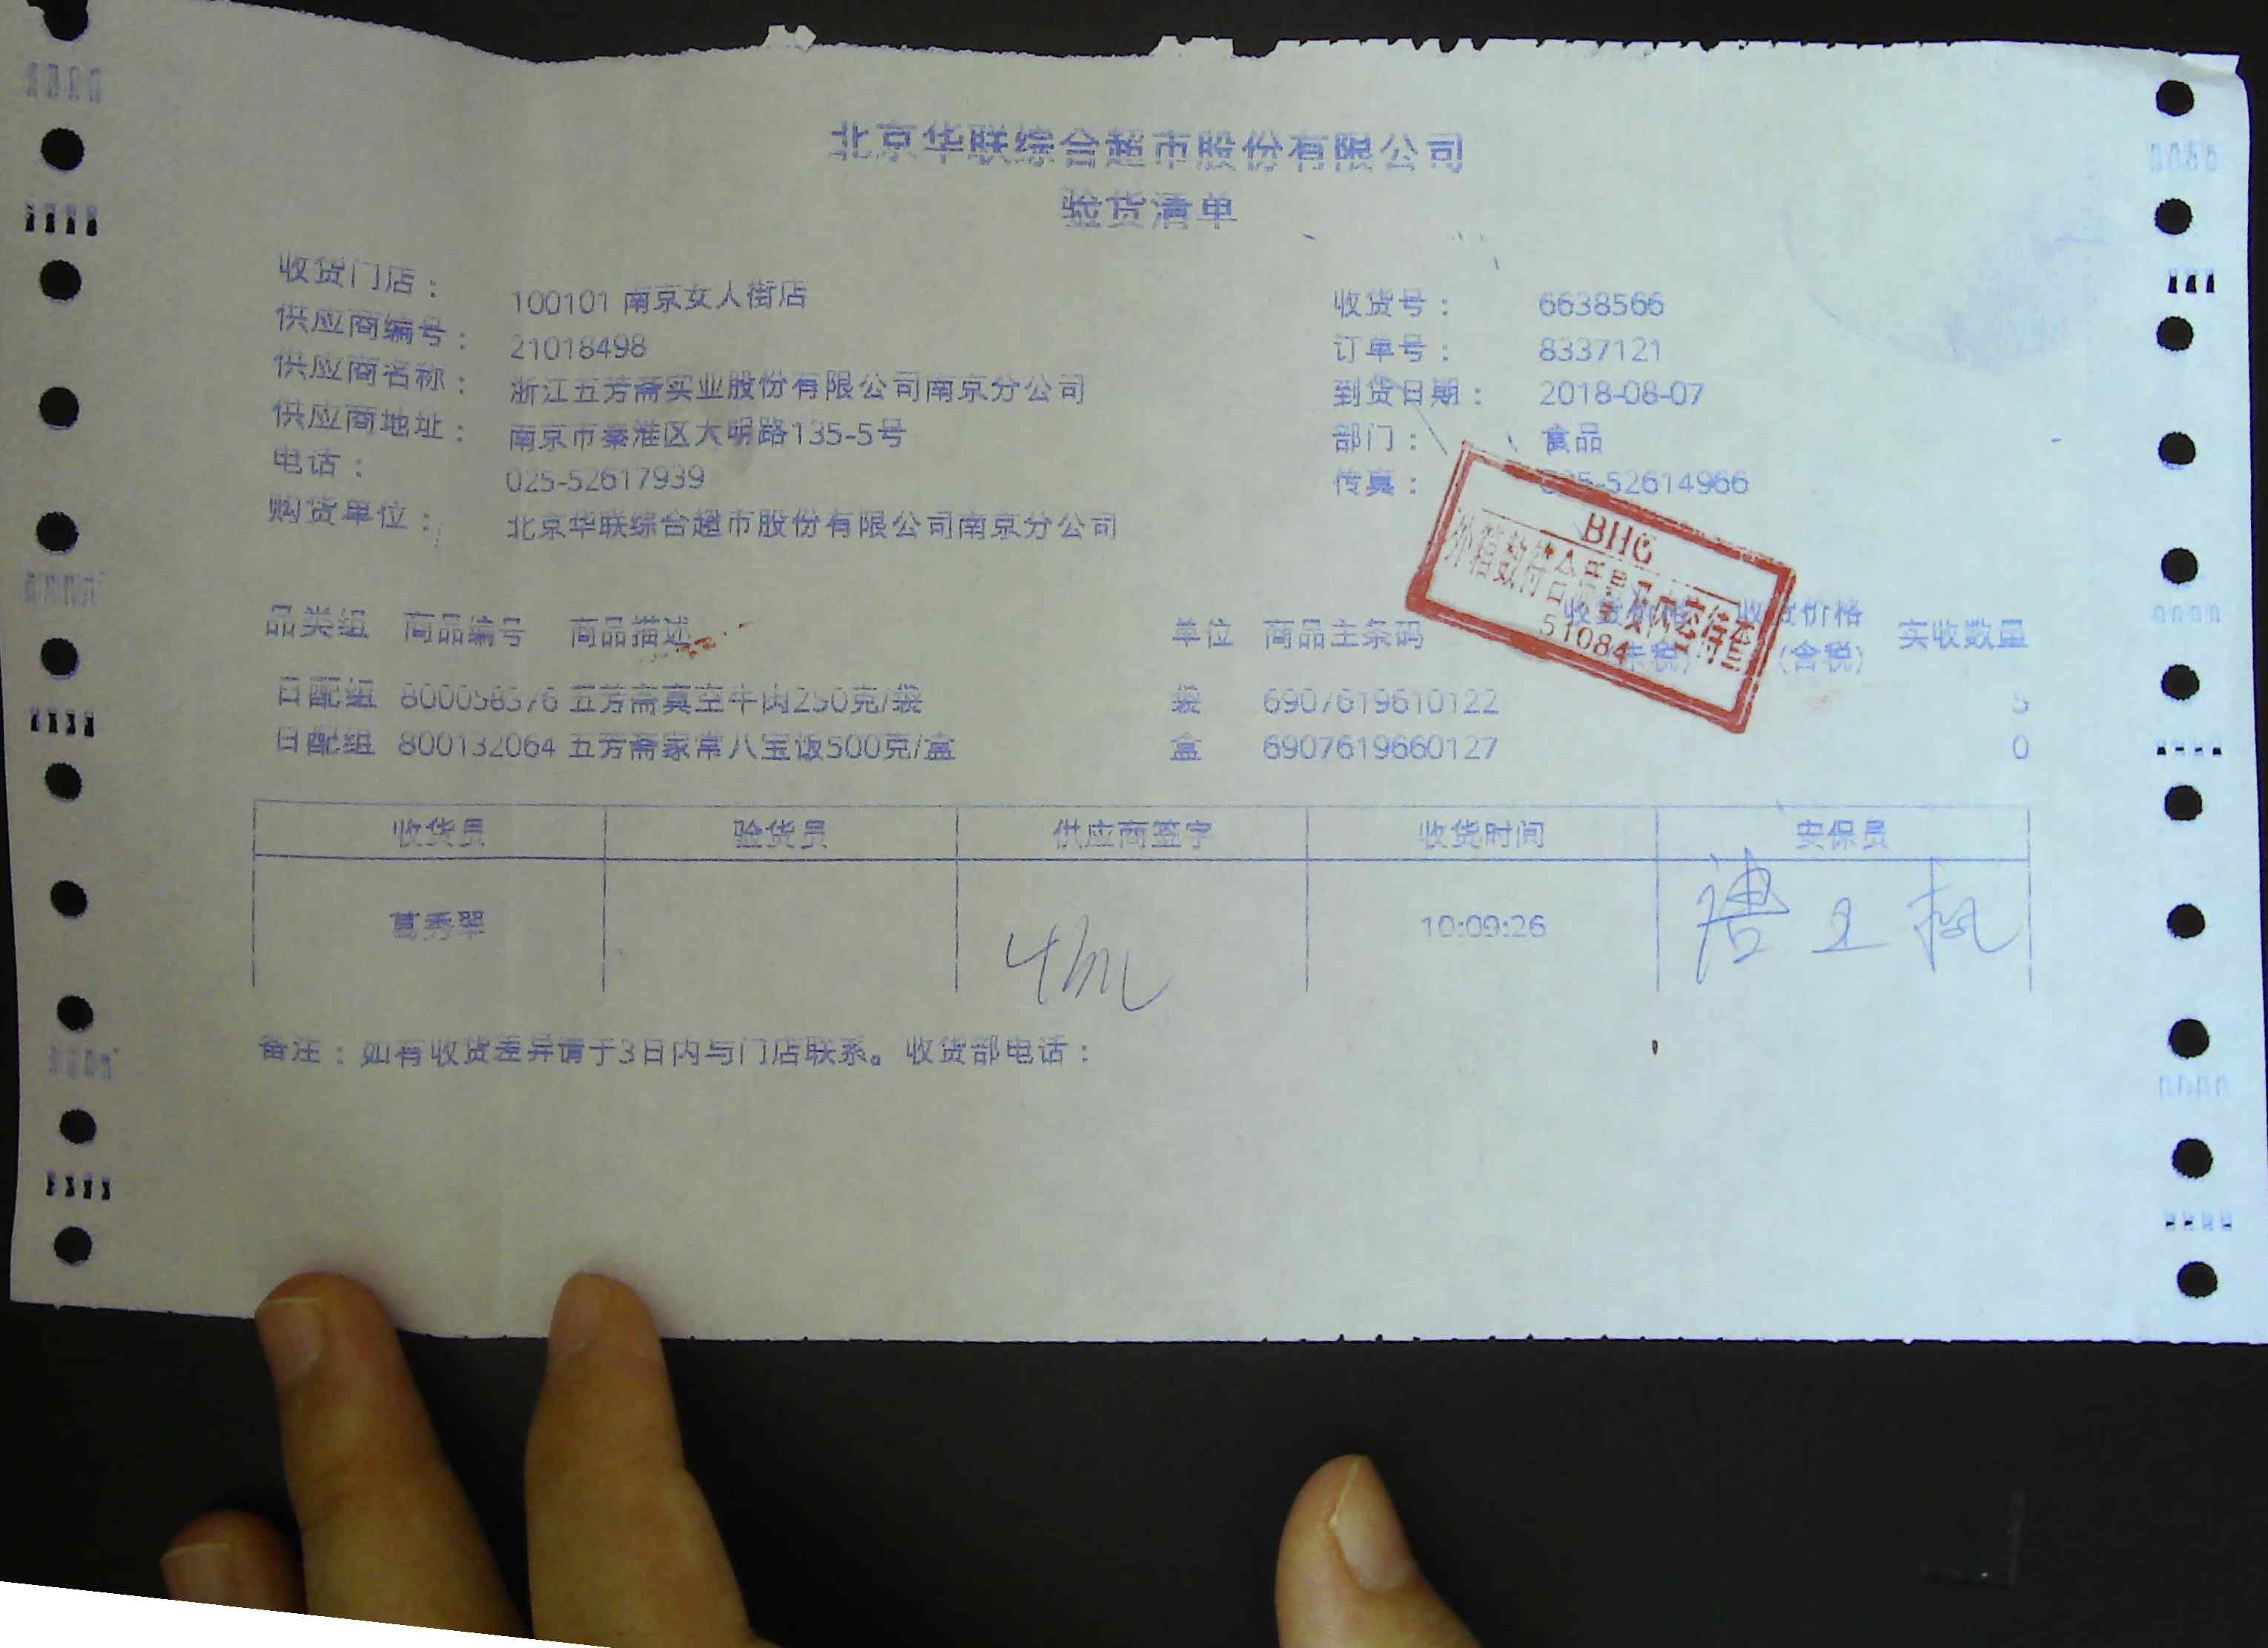 北京华联综合超市股份有限公司
验货清单
收货门店： 100101 南京女人街店 收货号： 6638566
供应商编号： 21018498 订单号： 8337121
供应商名称： 浙江五芳斋实业股份有限公司南京分公司 到货日期： 2018-08-07
供应商地址： 南京市秦淮区大明路135-5号 部门： 食品
电话： 025-52617939 传真： 025-52614966
购货单位： 北京华联综合超市股份有限公司南京分公司
BHG
外箱数符合
51084
品类组 商品编号 商品描述 单位 商品主条码 收货价格 收货价格 实收数量
(未税) (含税)
日配组 800058376 五芳斋真空牛肉250克/袋 袋 6907619610122 5
日配组 800132064 五芳斋家常八宝饭500克/盒 盒 6907619660127 0
收货员 验货员 供应商签字 收货时间 安保员
葛秀翠 10:09:26
备注：如有收货差异请于3日内与门店联系。收货部电话：